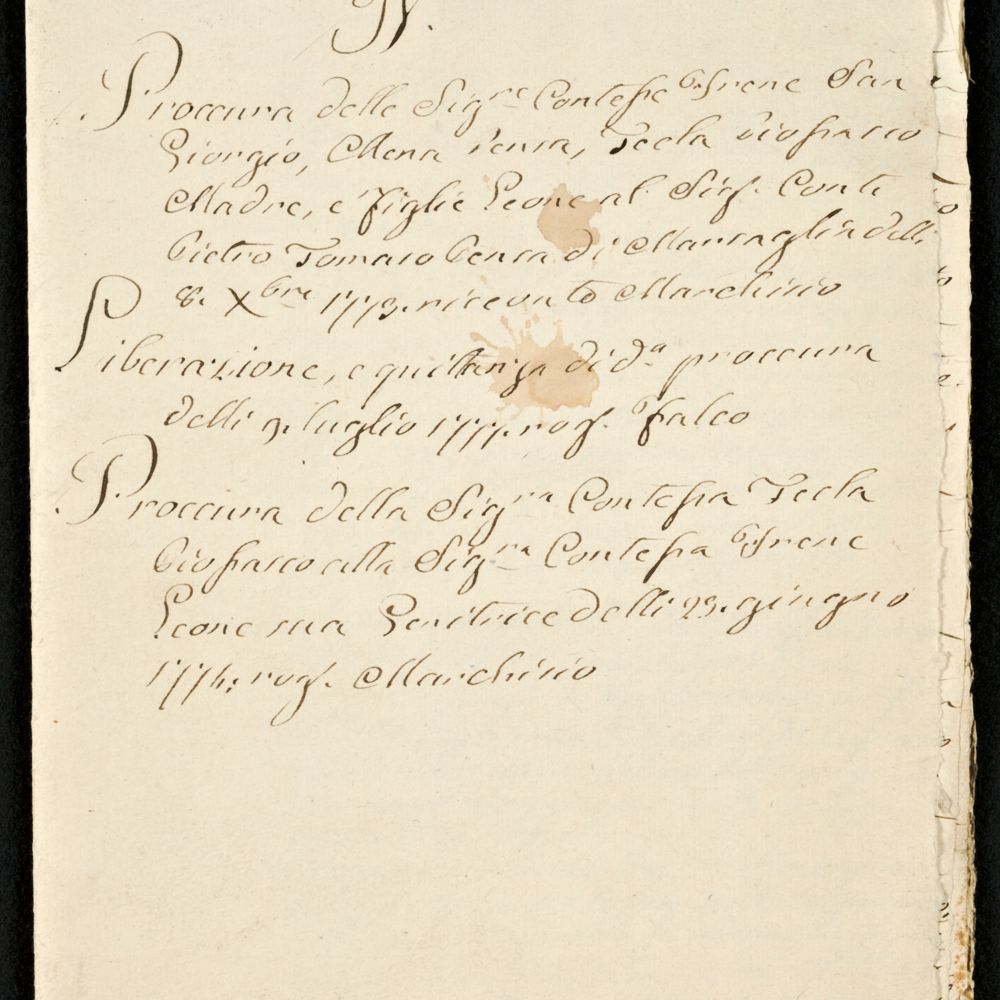 Proccura delle Sig.re Contesse Irene San
Giorgio, Mena Pensa, Tecla Giofracco
Madre, e figlie Leone al Sig.r Conte
Pietro Tomaso Pensa di Marsaglia delli
8. Xbre 1773. ricevuto Marchisio
Liberazione, e quittanza di d.a proccura
delli 9. luglio 1777. rog. Falco
Proccura della Sig.ra Contessa Tecla
Giofracco alla Sig.ra Contessa Irene
Leone sua Genitrice delli 23. giugno
1774: rog. Marchisio